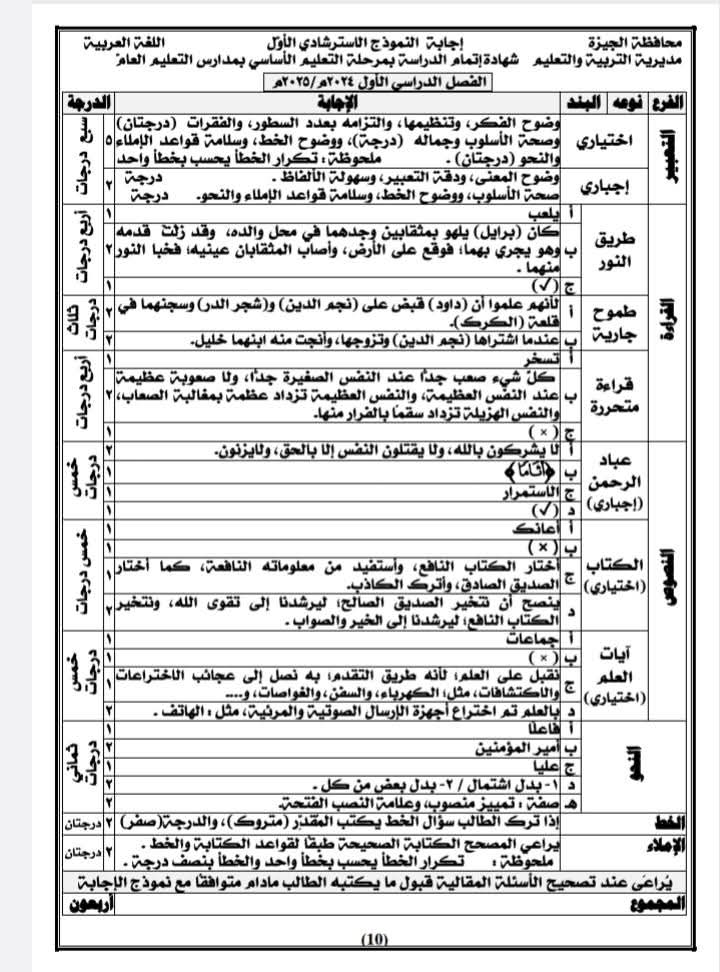 محافظة الجيزة إجابة النموذج الاسترشادي الأول اللغة العربية
مديرية التربية والتعليم شهادة إتمام الدراسة بمرحلة التعليم الأساسي بمدارس التعليم العام
الفصل الدراسي الأول ٢٠٢٤م/٢٠٢٥م
الفرع نوعه البند الإجابة الدرجة
التعبير
اختياري
وضوح الفكر، وتنظيمها، والتزامه بعدد السطور، والفقرات (درجتان)
وصحة الأسلوب وجماله (درجة)، ووضوح الخط، وسلامة قواعد الإملاء
والنحو (درجتان) . ملحوظة: تكرار الخطأ يحسب بخطأ واحد
٥
سبع درجات
إجباري
وضوح المعنى، ودقة التعبير، وسهولة الألفاظ . درجة
صحة الأسلوب، ووضوح الخط، وسلامة قواعد الإملاء والنحو. درجة
٢
القراءة
طريق النور
أ يلعب ١
ب كان (برايل) يلهو بمثقابين وجدهما في محل والده، وقد زلت قدمه
وهو يجري بهما؛ فوقع على الأرض، وأصاب المثقابان عينيه؛ فخبا النور
منهما . ٢
ج (√) ١
أربع درجات
طموح جارية
أ لأنهم علموا أن (داود) قبض على (نجم الدين) و(شجر الدر) وسجنهما في
قلعة (الكرك). ٢
ب عندما اشتراها (نجم الدين) وتزوجها، وأنجت منه ابنهما خليل. ٢
ثلاث درجات
قراءة متحررة
أ تسخر ١
ب كل شيء صعب جدًا عند النفس الصغيرة جدًا، ولا صعوبة عظيمة
عند النفس العظيمة، والنفس العظيمة تزداد عظمة بمغالبة الصعاب،
والنفس الهزيلة تزداد سقمًا بالفرار منها. ٢
ج (×) ١
أربع درجات
النصوص
عباد الرحمن (إجباري)
أ لا يشركون بالله، ولا يقتلون النفس إلا بالحق، ولايزنون. ٢
ب ﴿أَثَامًا﴾ ١
ج الاستمرار ١
د (√) ١
خمس درجات
الكتاب (اختياري)
أ أعانك ١
ب (×) ١
ج أختار الكتاب النافع، وأستفيد من معلوماته النافعة، كما أختار
الصديق الصادق، وأترك الكاذب. ١
د ينصح أن نتخير الصديق الصالح؛ ليرشدنا إلى تقوى الله، ونتخير
الكتاب النافع؛ ليرشدنا إلى الخير والصواب . ٢
خمس درجات
آيات العلم (اختياري)
أ جماعات ١
ب (×) ١
ج نقبل على العلم؛ لأنه طريق التقدم؛ به نصل إلى عجائب الاختراعات
والاكتشافات، مثل؛ الكهرباء، والسفن، والغواصات، و.... ١
د بالعلم تم اختراع أجهزة الإرسال الصوتية والمرئية، مثل : الهاتف . ٢
خمس درجات
النحو
أ فاعلًا ١
ب أمير المؤمنين ٢
ج عليا ١
د ١- بدل اشتمال / ٢- بدل بعض من كل . ٢
هـ صفة : تمييز منصوب، وعلامة النصب الفتحة. ٢
ثماني درجات
الخط إذا ترك الطالب سؤال الخط يكتب المقدّر (متروك)، والدرجة(صفر) ٢ درجتان
الإملاء يراعي المصحح الكتابة الصحيحة طبقًا لقواعد الكتابة والخط .
ملحوظة : تكرار الخطأ يحسب بخطأ واحد والخطأ بنصف درجة . ٢ درجتان
يُراعَى عند تصحيح الأسئلة المقالية قبول ما يكتبه الطالب مادام متوافقًا مع نموذج الإجابة
المجموع أربعون
(10)